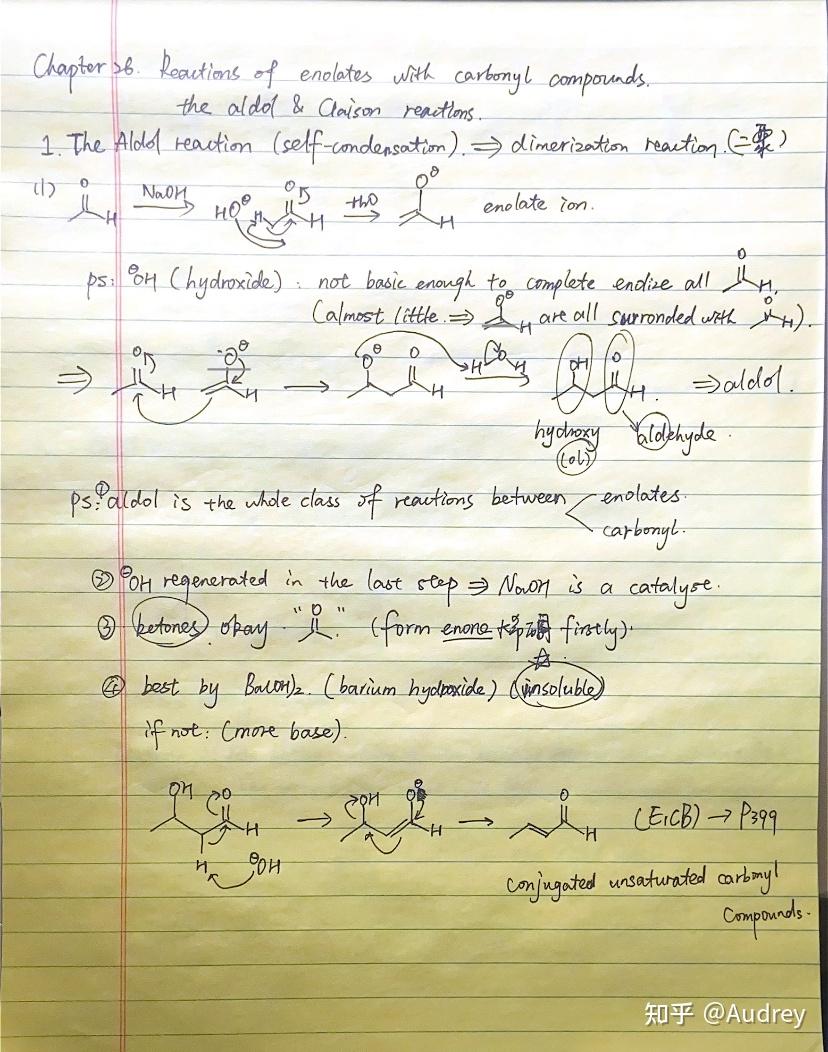 Chapter 26. Reactions of enolates with carbonyl compounds.
the aldol & Claison reactions.
1. The Aldol reaction (self-condensation). ⇒ dimerization reaction. (二聚)
(1) O H NaOH HO⊖ H O H -H₂O O⊖ H enolate ion.
ps: ⊖OH (hydroxide) : not basic enough to complete enolize all O H.
(almost little ⇒ O⊖ H are all surronded with O H).
⇒ O H O⊖ H → O⊖ O H H O H OH O H. ⇒ aldol.
hydroxy aldehyde.
(ol)
ps: ① aldol is the whole class of reactions between enolates.
carbonyl.
② ⊖OH regenerated in the last step ⇒ NaOH is a catalyse.
③ ketones okay. "O". (form enone 烯酮 firstly).
☆
④ best by Ba(OH)₂. (barium hydroxide) (insoluble)
if not: (more base).
OH O H H ⊖OH → OH O⊖ H → O H (E1CB) → P399
conjugated unsaturated carbonyl
compounds.
知乎 @Audrey